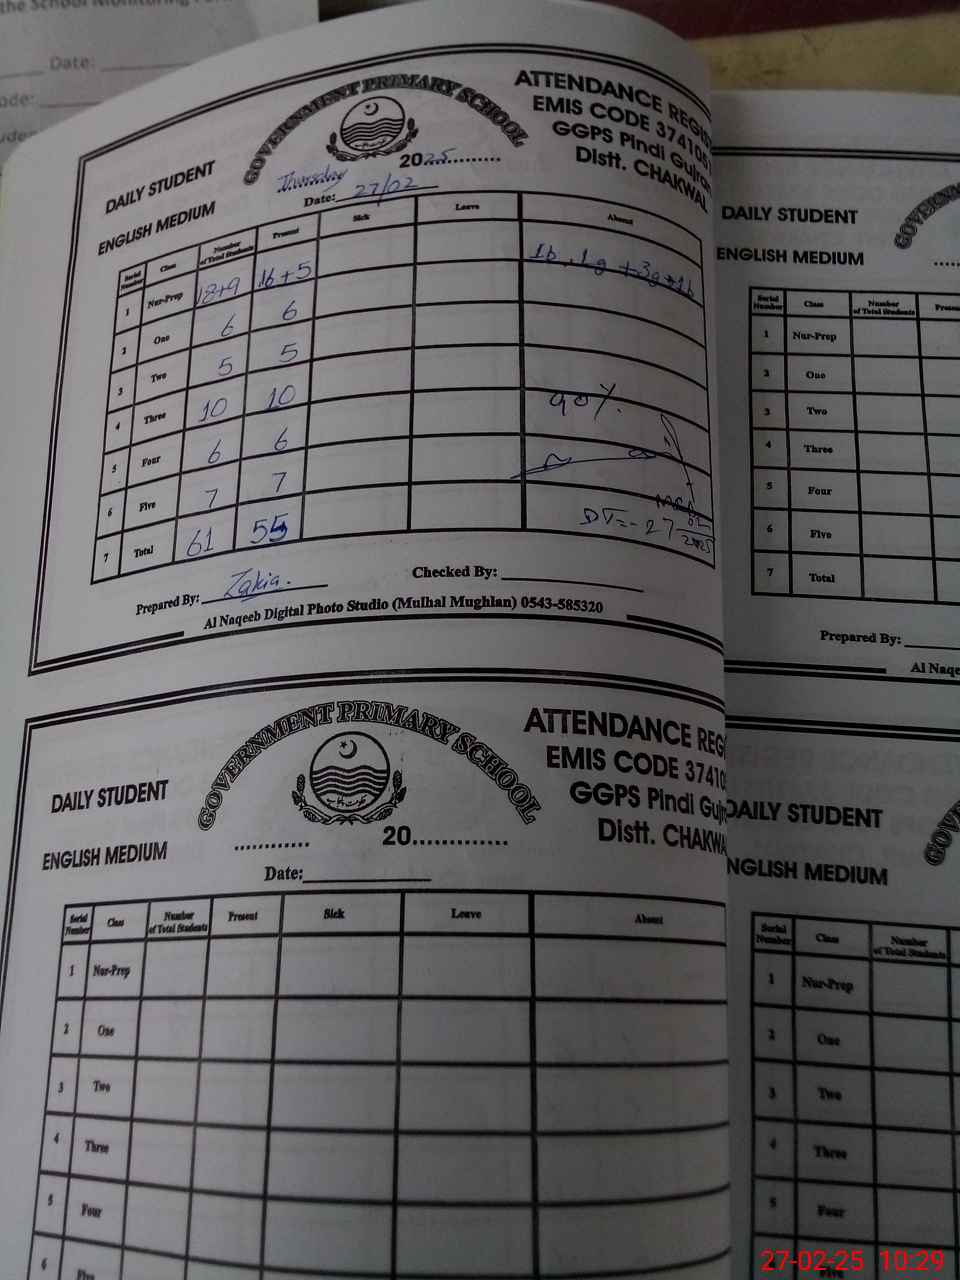 the School Monitoring
Date:
GOVERNMENT PRIMARY SCHOOL
ATTENDANCE
EMIS CODE
GGPS Pindi
Distt. CHAKWAL
DAILY STUDENT
ENGLISH MEDIUM
Thursday 2025
Date: 27/02
Serial Number Class Number of Total Students Present Sick Leave Absent
1 Nur-Prep 18+9 16+5 1b, 1g + 3g + 1b
2 One 6 6
3 Two 5 5
4 Three 10 10 90%.
5 Four 6 6
6 Five 7 7
7 Total 61 55 DT=- 27/02/2025
Prepared By: Zakia. Checked By:
Al Naqeeb Digital Photo Studio (Mulhal Mughlan) 0543-585320
GOVERNMENT PRIMARY SCHOOL
ATTENDANCE
EMIS CODE
GGPS Pindi
Distt.
DAILY STUDENT
ENGLISH MEDIUM
............ 20.............
Date:
Serial Number Class Number of Total Students Present Sick Leave Absent
1 Nur-Prep
2 One
3 Two
4 Three
5 Four
6 Five
DAILY STUDENT
ENGLISH MEDIUM
Serial Number Class Number of Total Students Present
1 Nur-Prep
2 One
3 Two
4 Three
5 Four
6 Five
7 Total
Prepared By:
Al
DAILY STUDENT
ENGLISH MEDIUM
Serial Number Class Number of Total Students
1 Nur-Prep
2 One
3 Two
4 Three
5 Four
Five
27-02-25 10:29